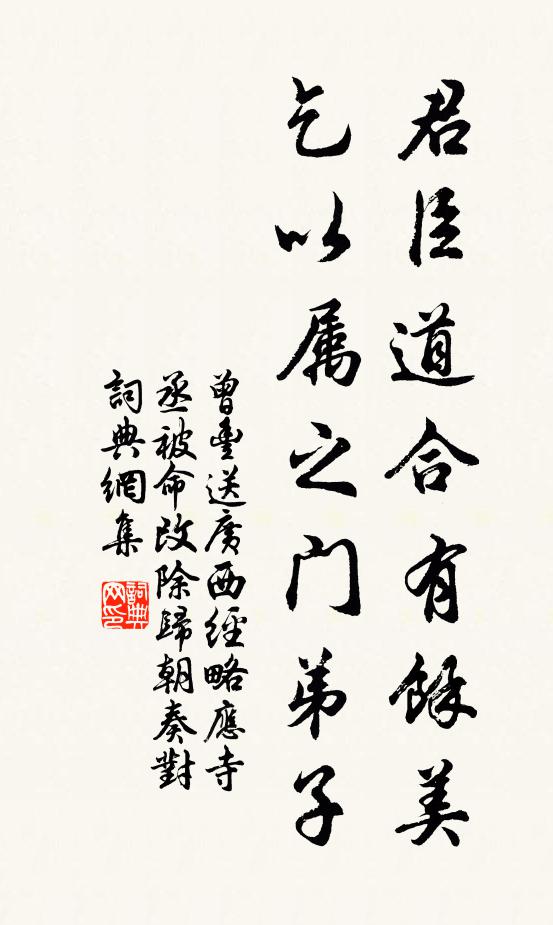 君臣道合有餘美
乞以属之門弟子
曾豐送廣西經略應寺
丞被命改除歸朝奏對
詞典網集
詞典
网印